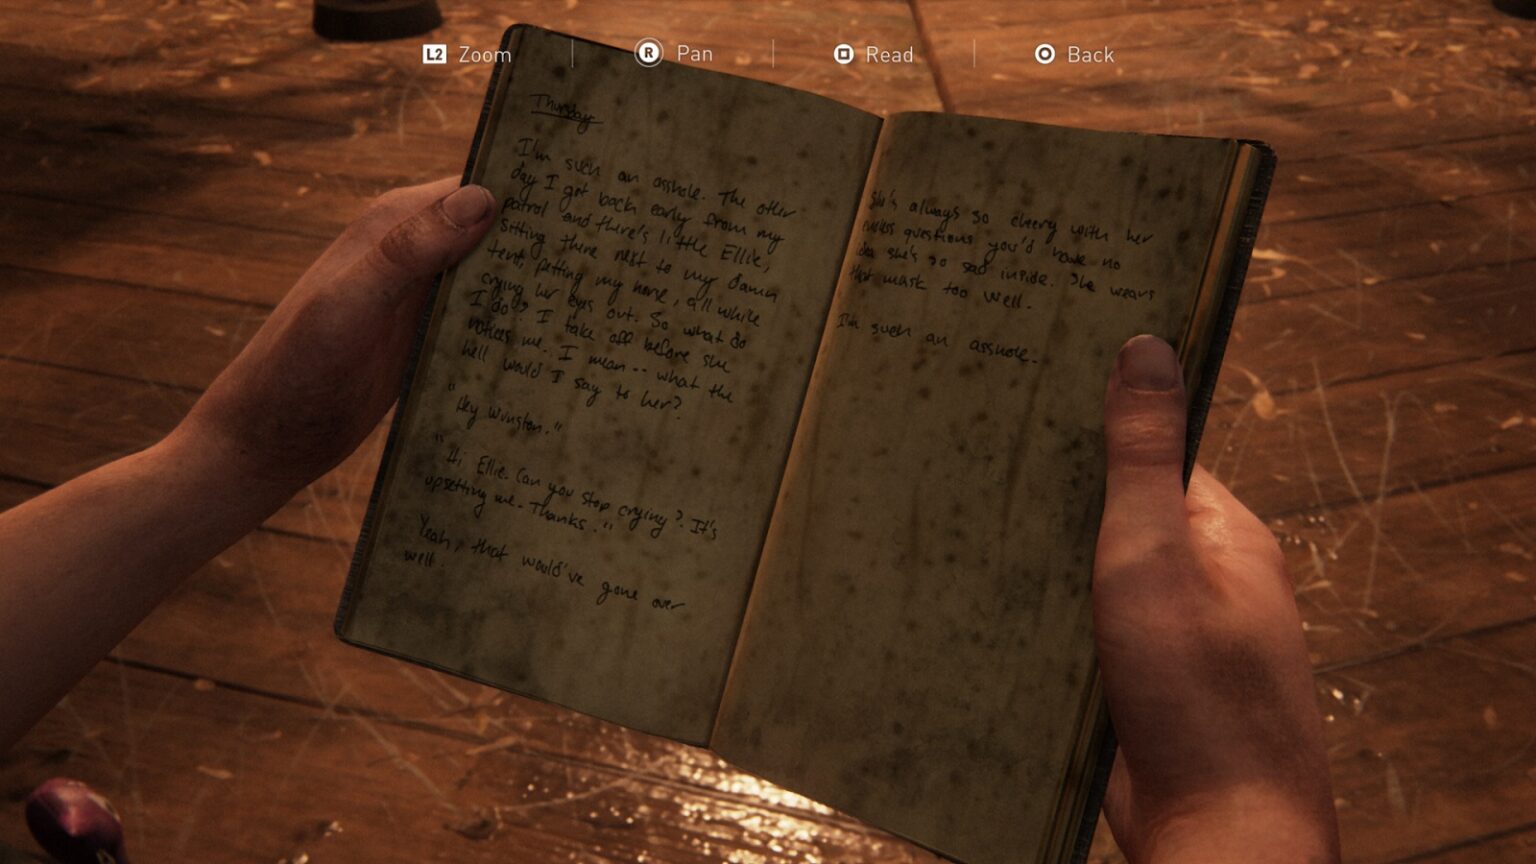 L2 Zoom
R Pan
Read
Back
Thursday
I'm such an asshole. The other
day I got back early from my
patrol and there's little Ellie,
sitting there next to my damn
tent, petting my horse, all while
crying her eyes out. So what do
I do? I take off before she
notices me. I mean -- what the
hell would I say to her?
"
Hey Winston."
"
Hi Ellie. Can you stop crying? It's
upsetting me. Thanks."
Yeah, that would've gone over
well.
She's always so cheery with her
endless questions you'd have no
idea she's so sad inside. She wears
that mask too well.
I'm such an asshole.